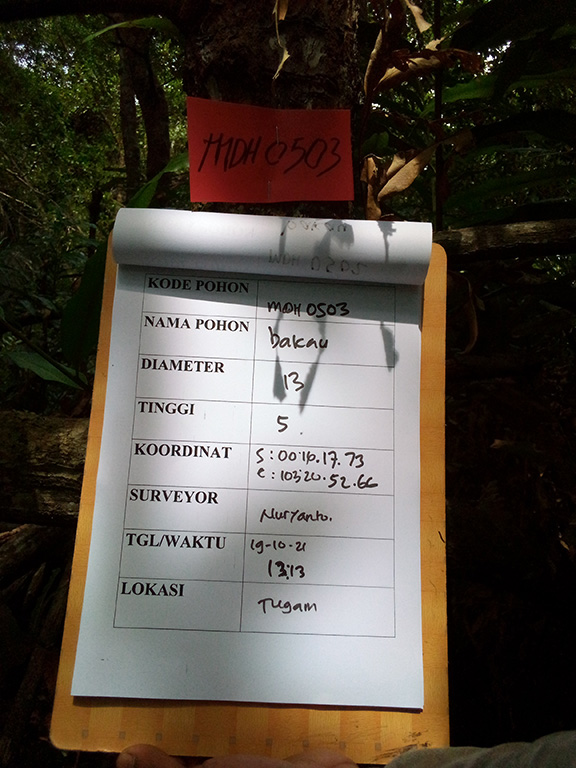 MDH 0503
KODE POHON MDH 0503
NAMA POHON bakau
DIAMETER 13
TINGGI 5
KOORDINAT S : 00.16.17.73
E : 103.20.52.66
SURVEYOR Nuryanto.
TGL/WAKTU 19-10-21
13:13
LOKASI Tugam